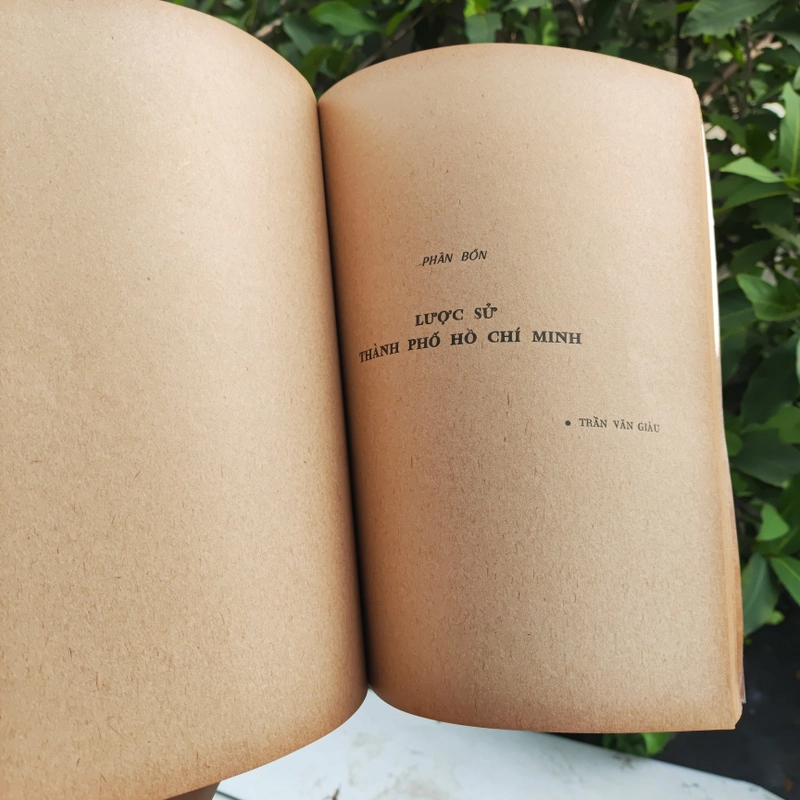 PHẦN BỐN
LƯỢC SỬ
THÀNH PHỐ HỒ CHÍ MINH
• TRẦN VĂN GIÀU